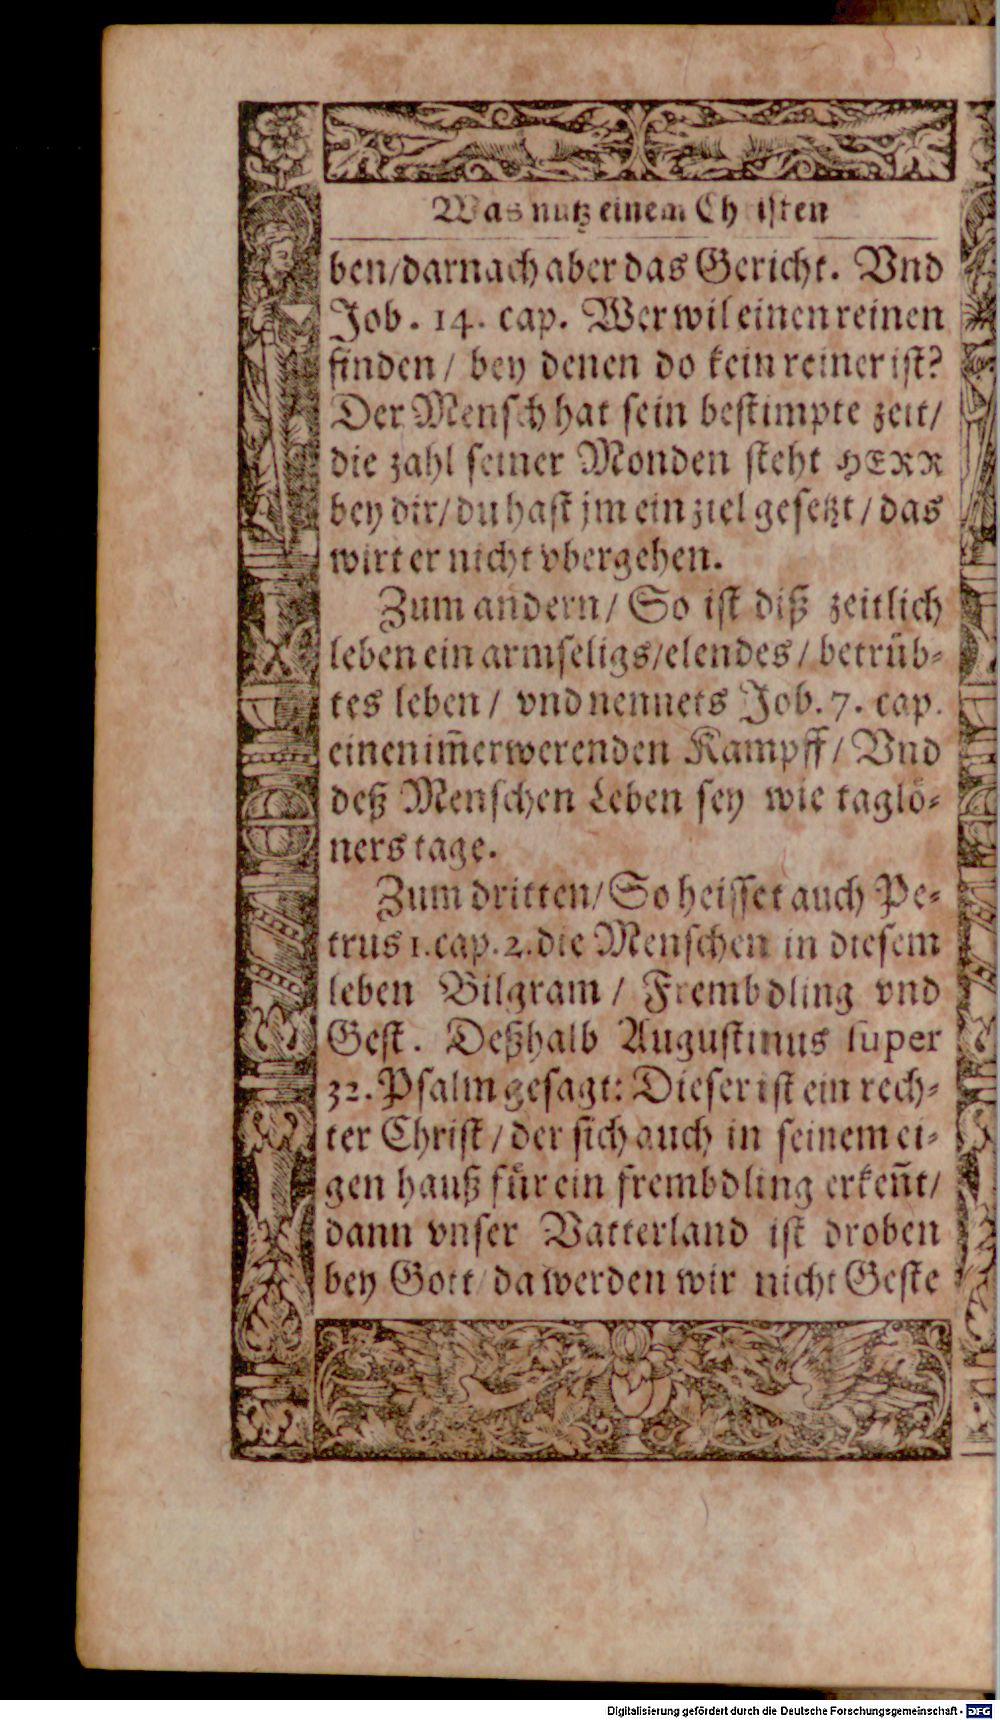 Was nutz einem Christen
ben/darnach aber das Gericht. Vnd
Job. 14. cap. Wer wil einen reinen
finden/ bey denen do kein reiner ist?
Der Mensch hat sein bestimpte zeit/
die zahl seiner Monden steht HERR
bey dir/ du hast jm ein ziel gesetzt/ das
wirt er nicht vbergehen.
Zum andern/ So ist diß zeitlich
leben ein armseligs/elendes/ betrüb⸗
tes leben/ vnd nennets Job. 7. cap.
einen im̃erwerenden Kampff/ Vnd
deß Menschen Leben sey wie taglö⸗
ners tage.
Zum dritten/ So heisset auch Pe⸗
trus 1. cap. 2. die Menschen in diesem
leben Bilgram/ Frembdling vnd
Gest. Deßhalb Augustinus super
32. Psalm gesagt: Dieser ist ein rech⸗
ter Christ/ der sich auch in seinem ei⸗
gen hauß für ein frembdling erkeñt/
dann vnser Vatterland ist droben
bey Gott/ da werden wir nicht Geste
Digitalisierung gefördert durch die Deutsche Forschungsgemeinschaft - DFG